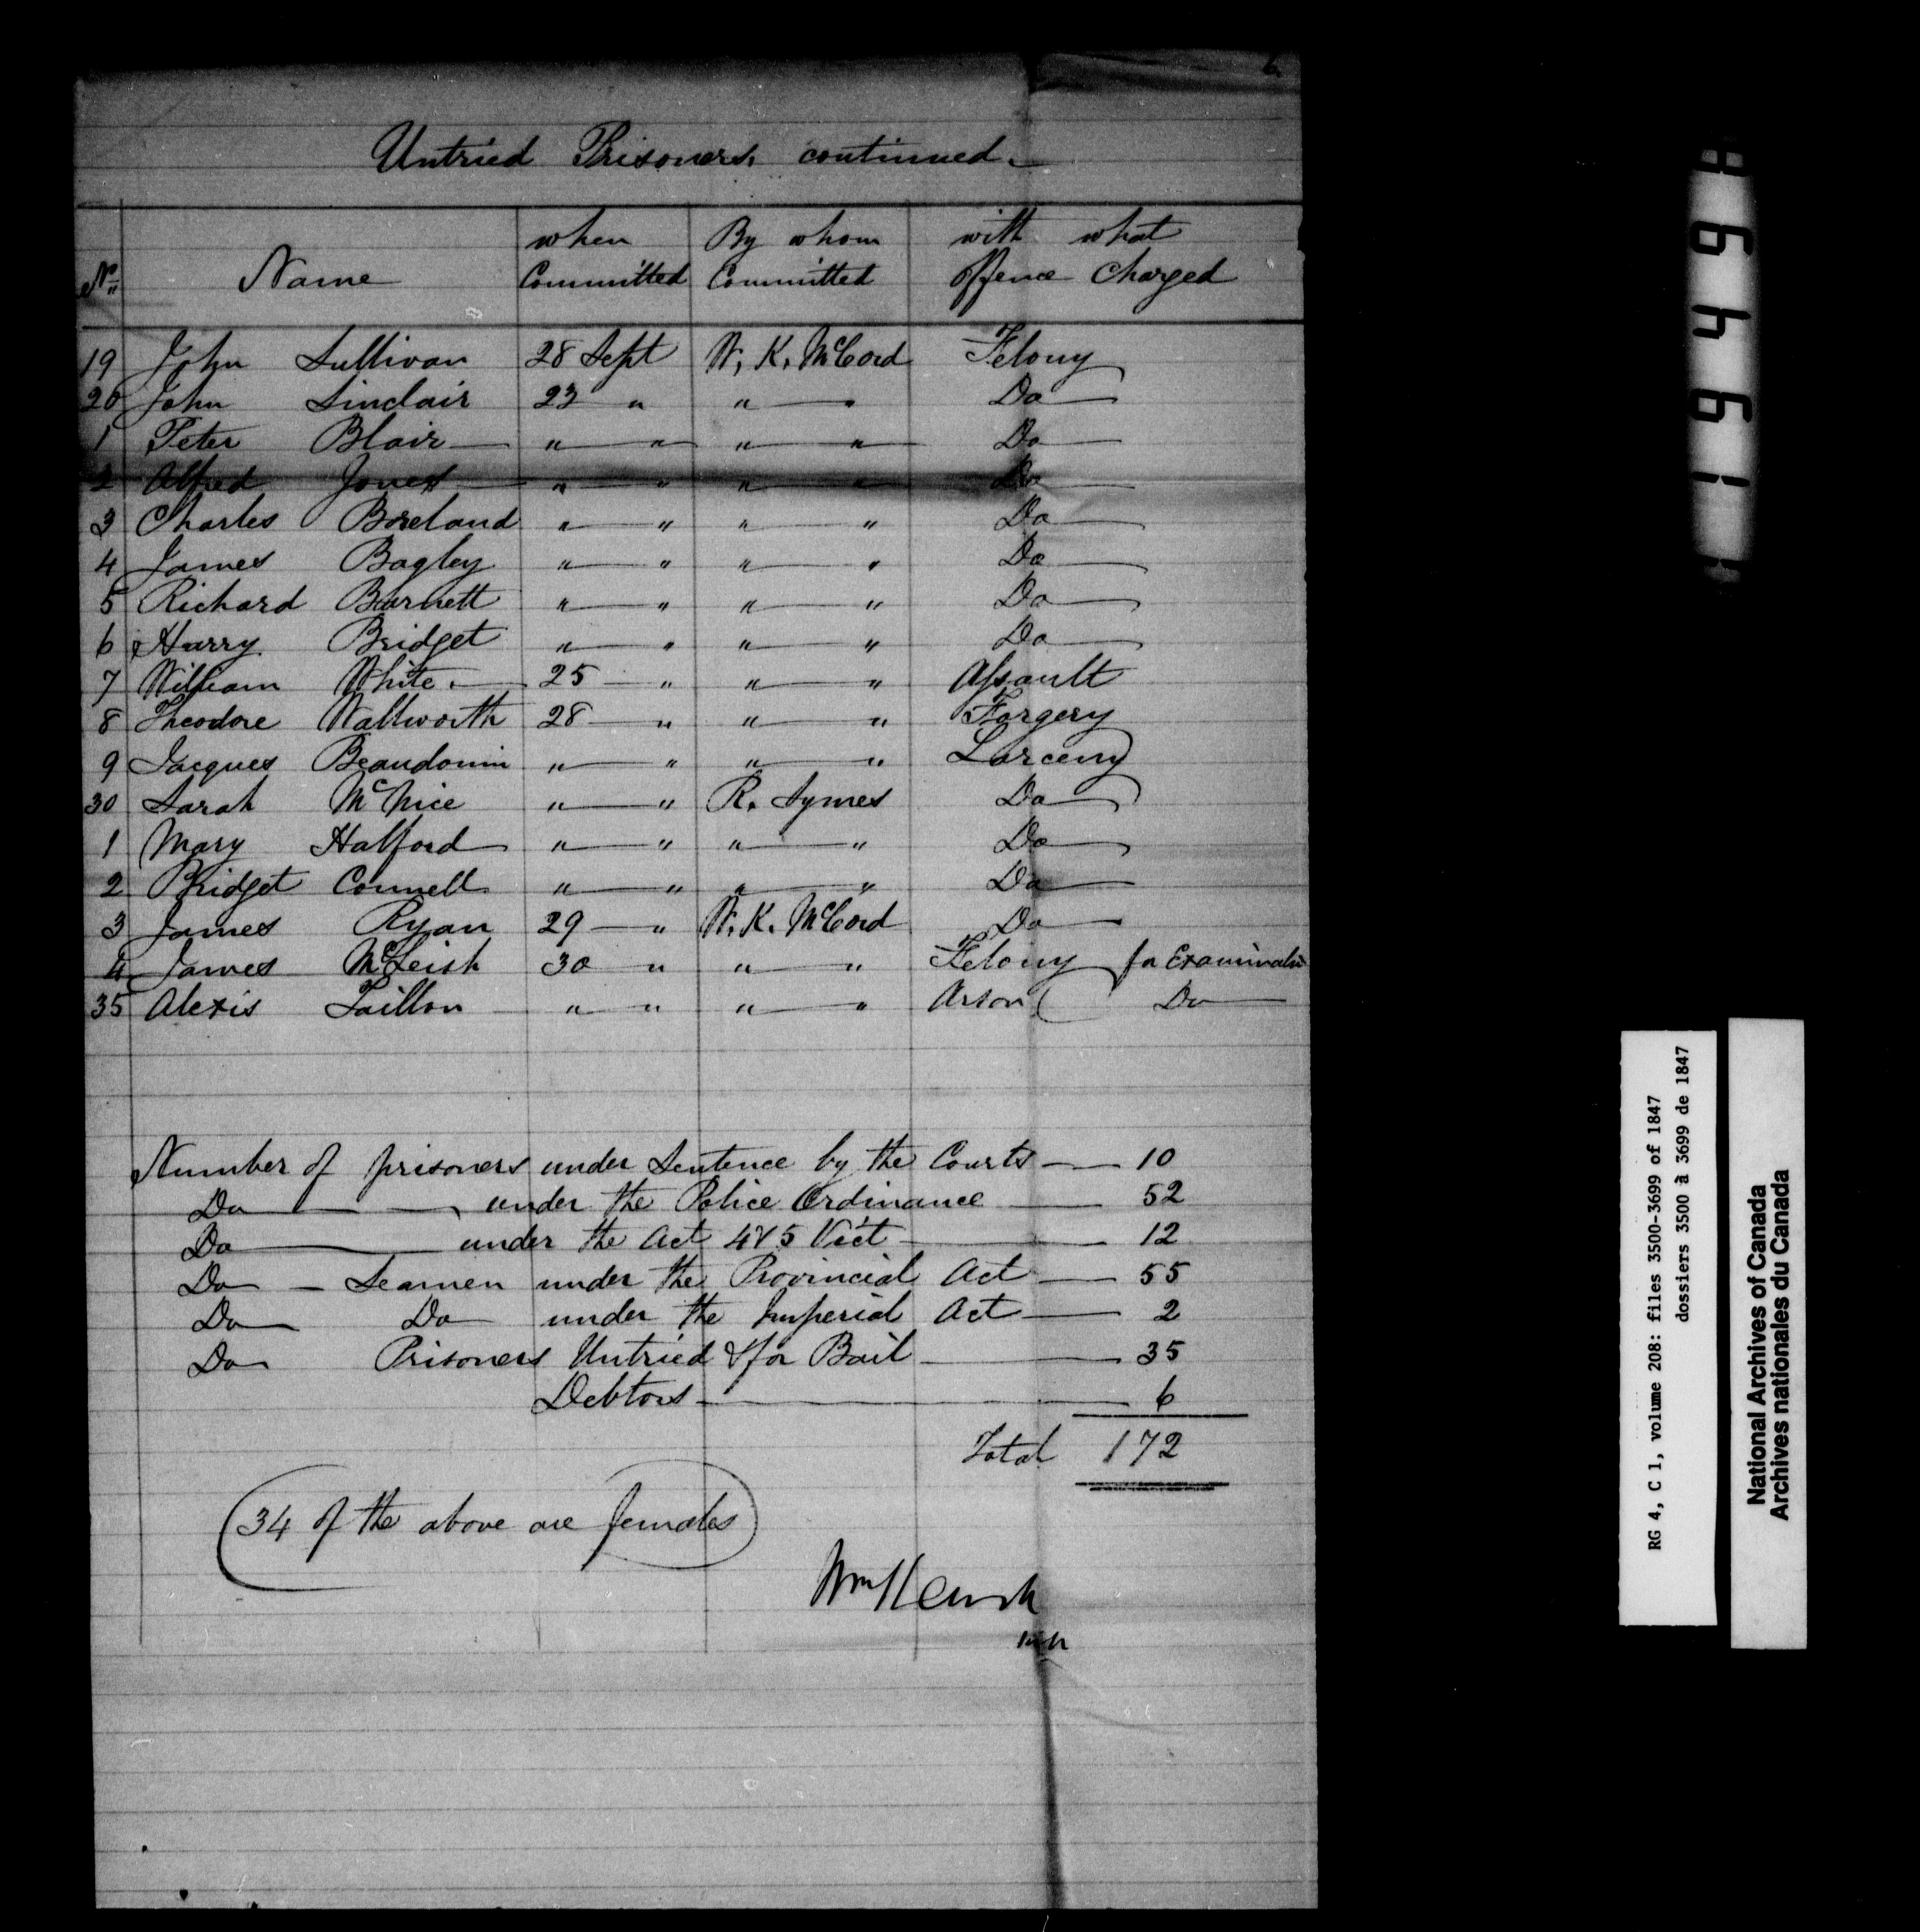 6
Untried Prisoners continued.
No. Name when Committed By whom Committed with what offence Charged
19 John Sullivan 28 Sept W. K. McCord Felony
20 John Sinclair 23 " " " Do
1 Peter Blair " " " " Do
2 Alfred Jones " " " " Do
3 Charles Boreland " " " " Do
4 James Bagley " " " " Do
5 Richard Burnett " " " " Do
6 Harry Bridget " " " " Do
7 William White. 25 " " " Assault
8 Theodore Wallworth 28 " " " Forgery
9 Jacques Beaudouin " " " " Larceny
30 Sarah McNice " " R. Symes Do
1 Mary Halford " " " " Do
2 Bridget Connell " " " " Do
3 James Ryan 29 " W. K. McCord Do
4 James McLeish 30 " " " Felony for Examination
35 Alexis Taillon " " " " Arson Do
Number of prisoners under Sentence by the Courts 10
Do under the Police Ordinance 52
Do under the Act 4 & 5 Vict 12
Do Seamen under the Provincial Act 55
Do Do under the Imperial Act 2
Do Prisoners Untried & for Bail 35
Debtors 6
Total 172
34 of the above are females
Wm
19461
RG 4, C 1, volume 208: files 3500-3699 of 1847
dossiers 3500 à 3699 de 1847
National Archives of Canada
Archives nationales du Canada